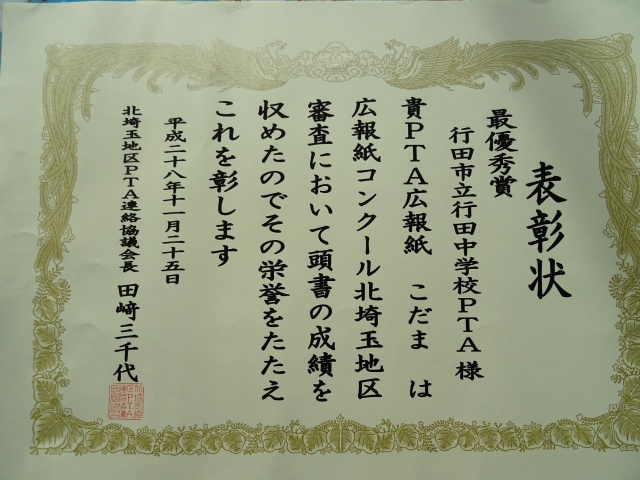 表彰状
最優秀賞
行田市立行田中学校PTA様
貴PTA広報紙 こだま は
広報紙コンクール北埼玉地区
審査において頭書の成績を
収めたのでその栄誉をたたえ
これを彰します
平成二十八年十一月二十五日
北埼玉地区PTA連絡協議会長 田﨑三千代